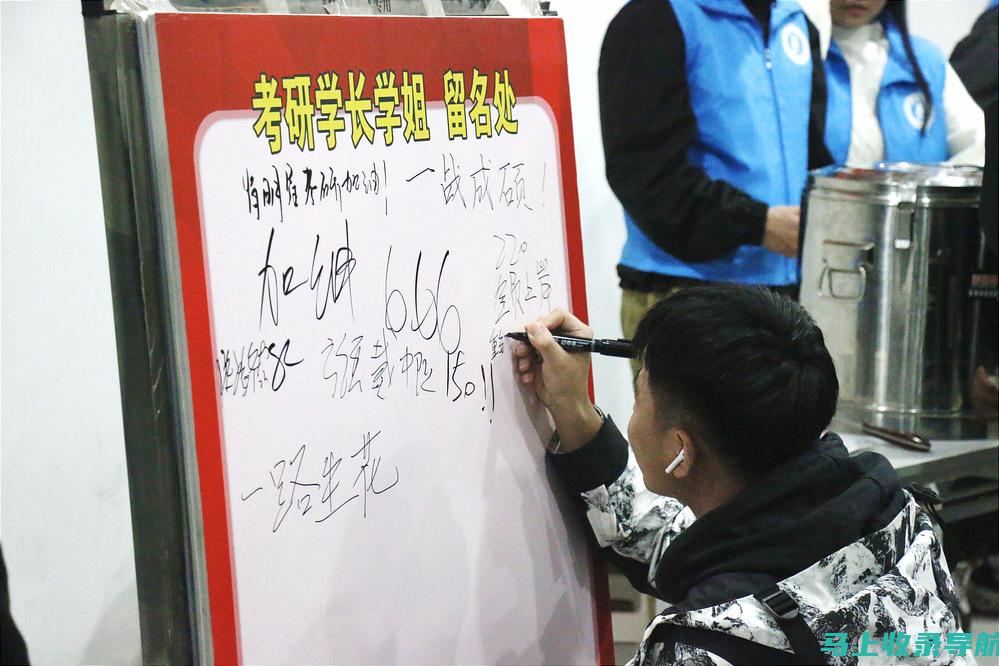 考研学长学姐 留名处
考研加油!
一战成硕!
加油
666
220
上岸
150!!
一路生花
马上收录导航